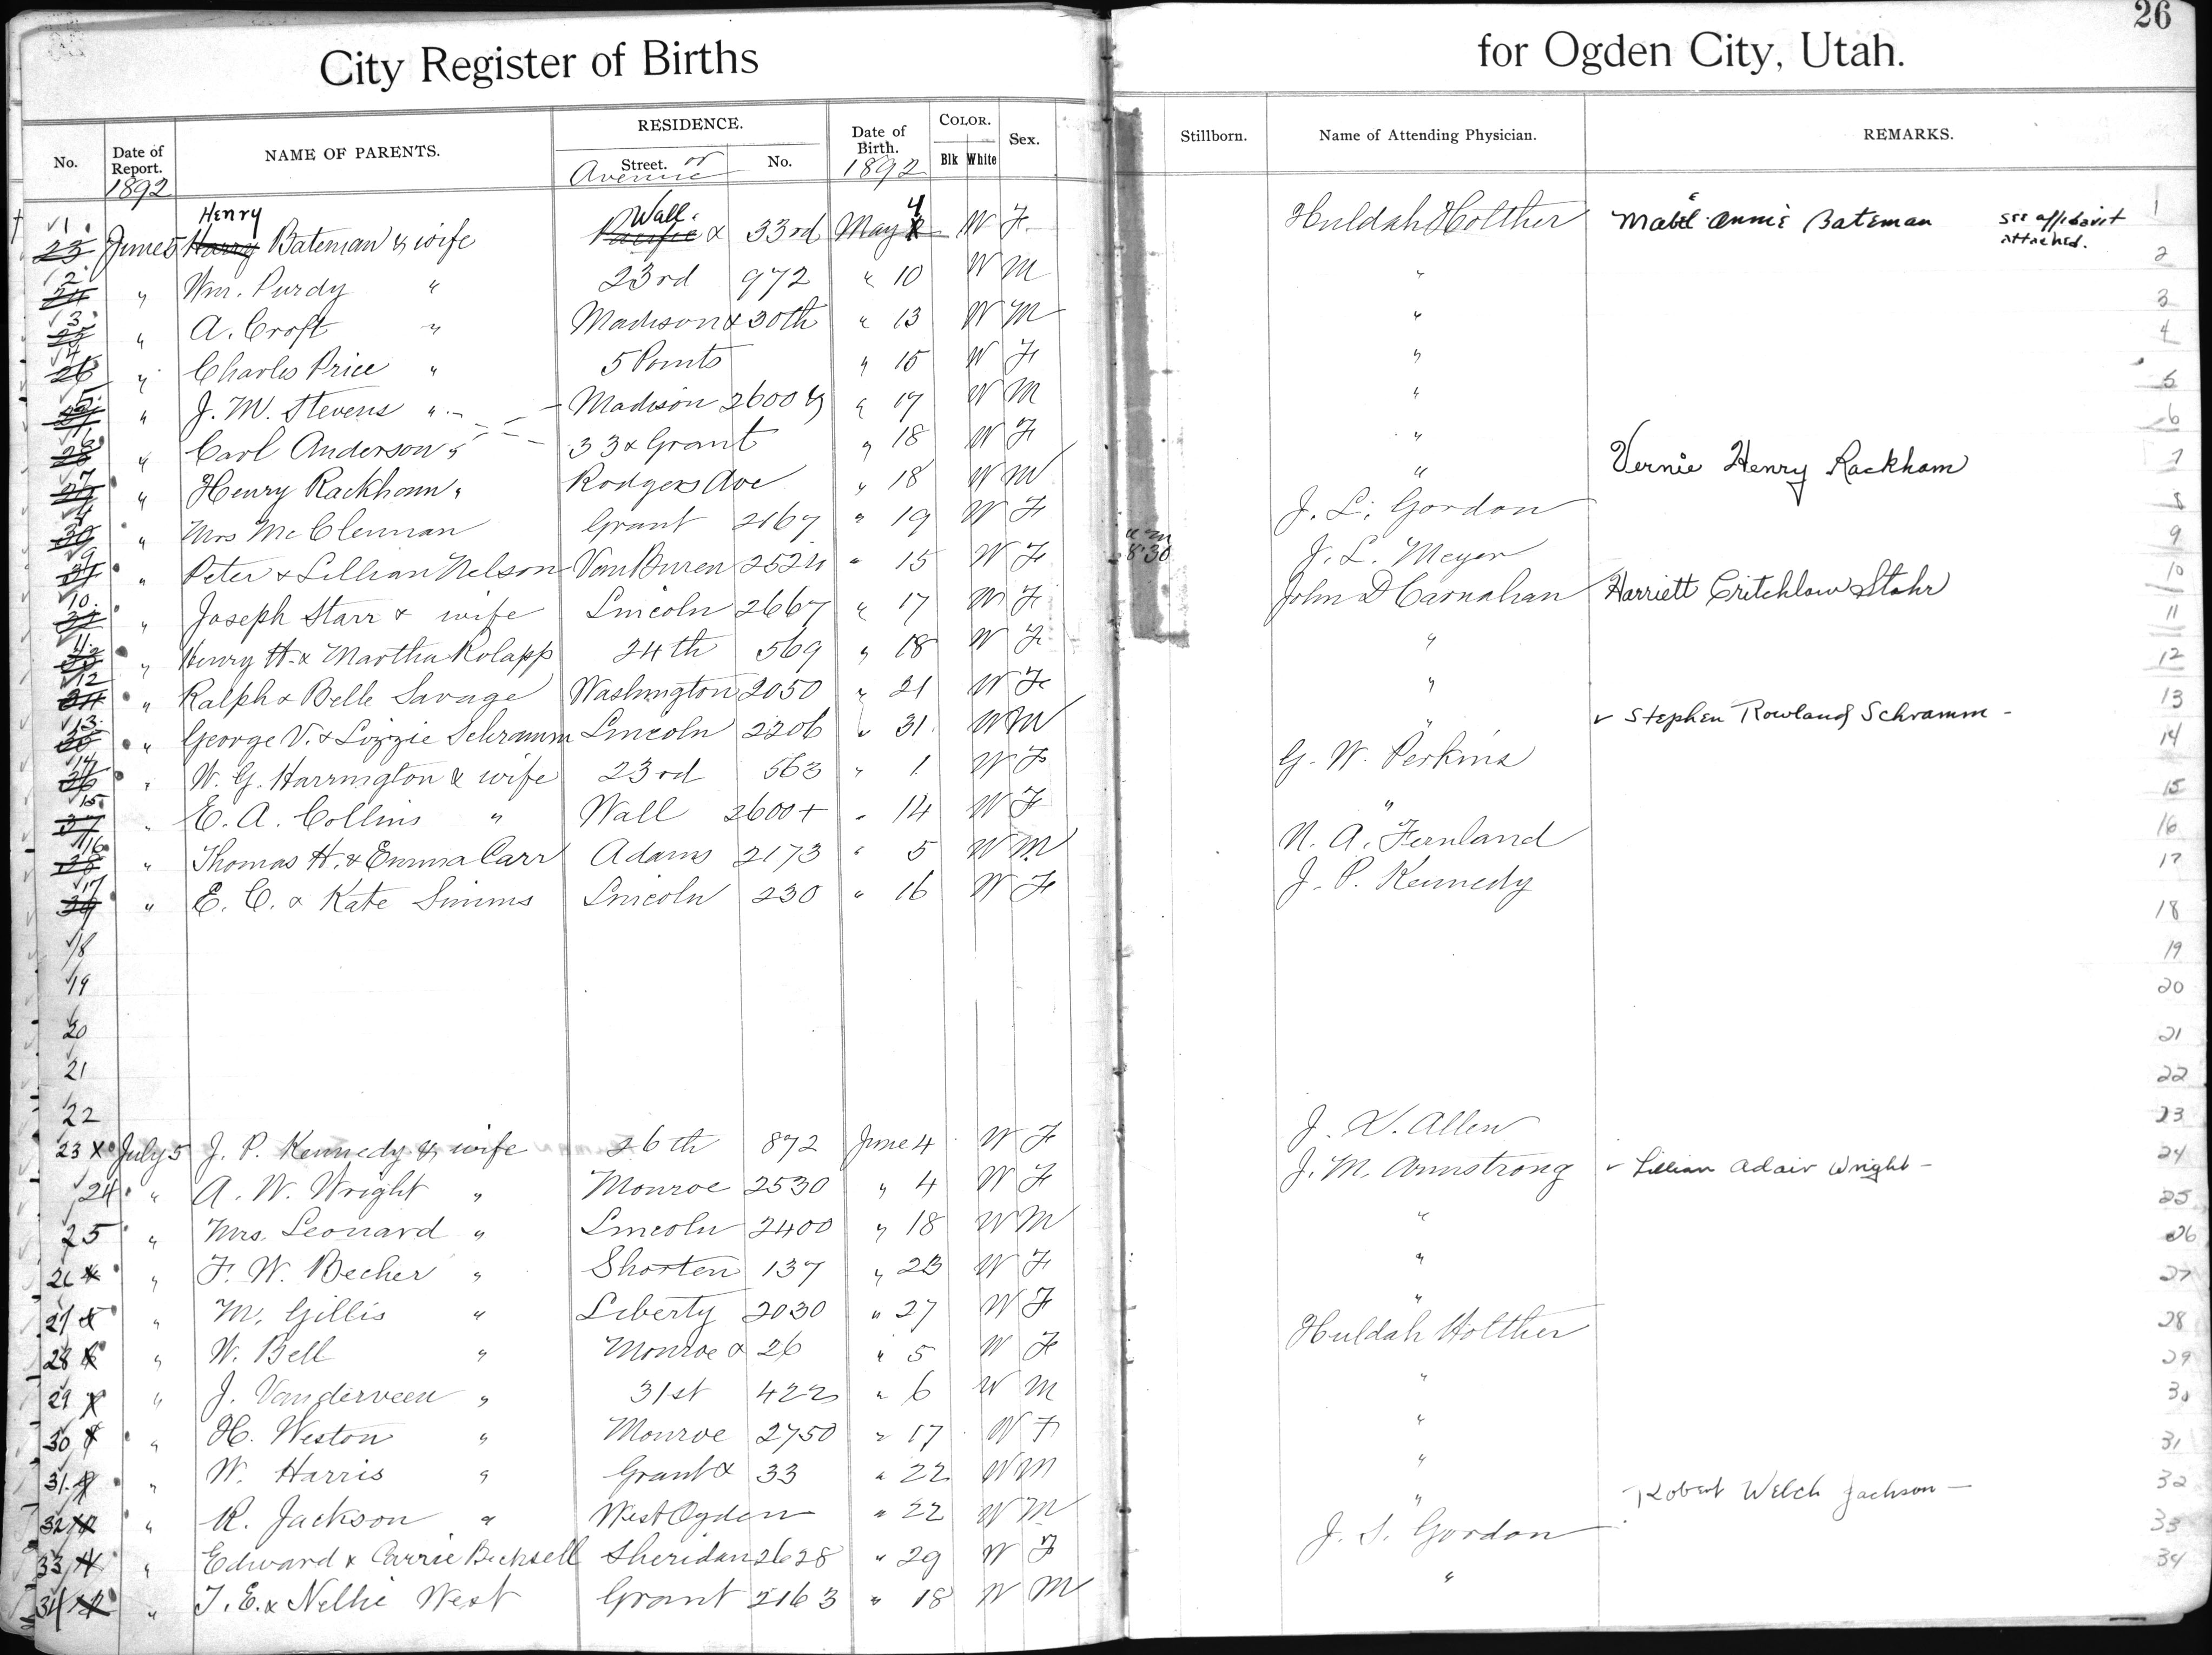 26
City Register of Births for Ogden City, Utah.
No. Date of Report. 1892 NAME OF PARENTS. RESIDENCE. Street. or Avenue No. Date of Birth. 1892 COLOR. Blk White Sex. Stillborn. Name of Attending Physician. REMARKS.
1. 23 June 5 Henry Harry Bateman & wife Wall. Pacific & 33rd May 4 W F. Huldah Holther Mabel Annie Bateman see affidavit attached. 1
2. 24 " Wm. Purdy " 23rd 972 " 10 W M " 2
3. 25 " A. Croft " Madison & 30th " 13 W M " 3
4 26 " Charles Price " 5 Points " 15 W F " 4
5. 27 " J. M. Stevens " Madison 2600 " 17 W M " 5
6 28 " Carl Anderson " 33 & Grant " 18 W F " 6
7 29 " Henry Rackham " Rodgers Ave " 18 W M " Vernie Henry Rackham 7
30 " Mrs McClennan Grant 2167 " 19 W F J. L. Gordon 8
9 31 " Peter & Lillian Nelson Van Buren 2524 " 15 W F 8:30 J. L. Meyer 9
10. 32 " Joseph Starr & wife Lincoln 2667 " 17 W F John D Carnahan Harriett Critchlow Stahr 10
11. 33 " Henry H. & Martha Rolapp 24th 569 " 18 W F " 11
12 34 " Ralph & Belle Savage Washington 2050 " 21 W F " 12
13. 35 " George V. & Lizzie Schramm Lincoln 2206 " 31. W M " ✓ Stephen Rowland Schramm - 13
14 36 " W. G. Harrington & wife 23rd 563 " 1 W F G. W. Perkins 14
15 37 " E. A. Collins " Wall 2600+ " 14 W F " 15
16 38 " Thomas H. & Emma Carr Adams 2173 " 5 W M N. A. Fernland 16
17 39 " E. C. & Kate Simms Lincoln 230 " 16 W F J. P. Kennedy 17
18 18
19 19
20 20
21 21
22 22
23 July 5 J. P. Kennedy & wife 26th 872 June 4 W F J. X. Allen 23
24 " A. W. Wright " Monroe 2530 " 4 W F J. M. Armstrong ✓ Lillian Adair Wright - 24
25 " Mrs. Leonard " Lincoln 2400 " 18 W M " 25
26 " F. W. Becher " Shorten 137 " 23 W F " 26
27 " M. Gillis " Liberty 2030 " 27 W F " 27
28 " W. Bell " Monroe & 26 " 5 W F Huldah Holther 28
29 " J. Vanderveen " 31st 422 " 6 W M " 29
30 " H. Weston " Monroe 2750 " 17 W F " 30
31. " W. Harris " Grant & 33 " 22 W M " 31
32 " R. Jackson " West Ogden " 22 W M " Robert Welch Jackson - 32
33 " Edward & Carrie Bichsell Sheridan 2628 " 29 W F J. S. Gordon 33
34 " T. E. & Nellie West Grant 2163 " 18 W M " 34